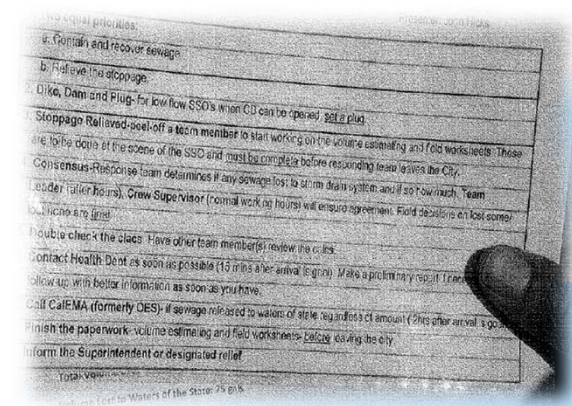 Two equal priorities: Presenter: John Hicks
a. Contain and recover sewage
b. Relieve the stoppage
2. Dike, Dam and Plug- for low flow SSO's when CB can be opened, set a plug
3. Stoppage Relieved-peel-off a team member to start working on the volume estimating and field worksheets. These
are to be done at the scene of the SSO and must be complete before responding team leaves the City.
Consensus-Response team determines if any sewage lost to storm drain system and if so how much. Team
Leader (after hours), Crew Supervisor (normal working hours) will ensure agreement. Field decisions on lost some/
lost none are final.
Double check the clacs. Have other team member(s) review the calcs.
Contact Health Dept as soon as possible (15 mins after arrival is goal). Make a preliminary report
follow-up with better information as soon as you have.
Call CalEMA (formerly OES)- if sewage released to waters of state regardless of amount (2hrs after arrival is goal
Finish the paperwork- volume estimating and field worksheets- before leaving the city
Inform the Superintendent or designated relief
Total Volume
Volume Lost to Waters of the State: 75 gals